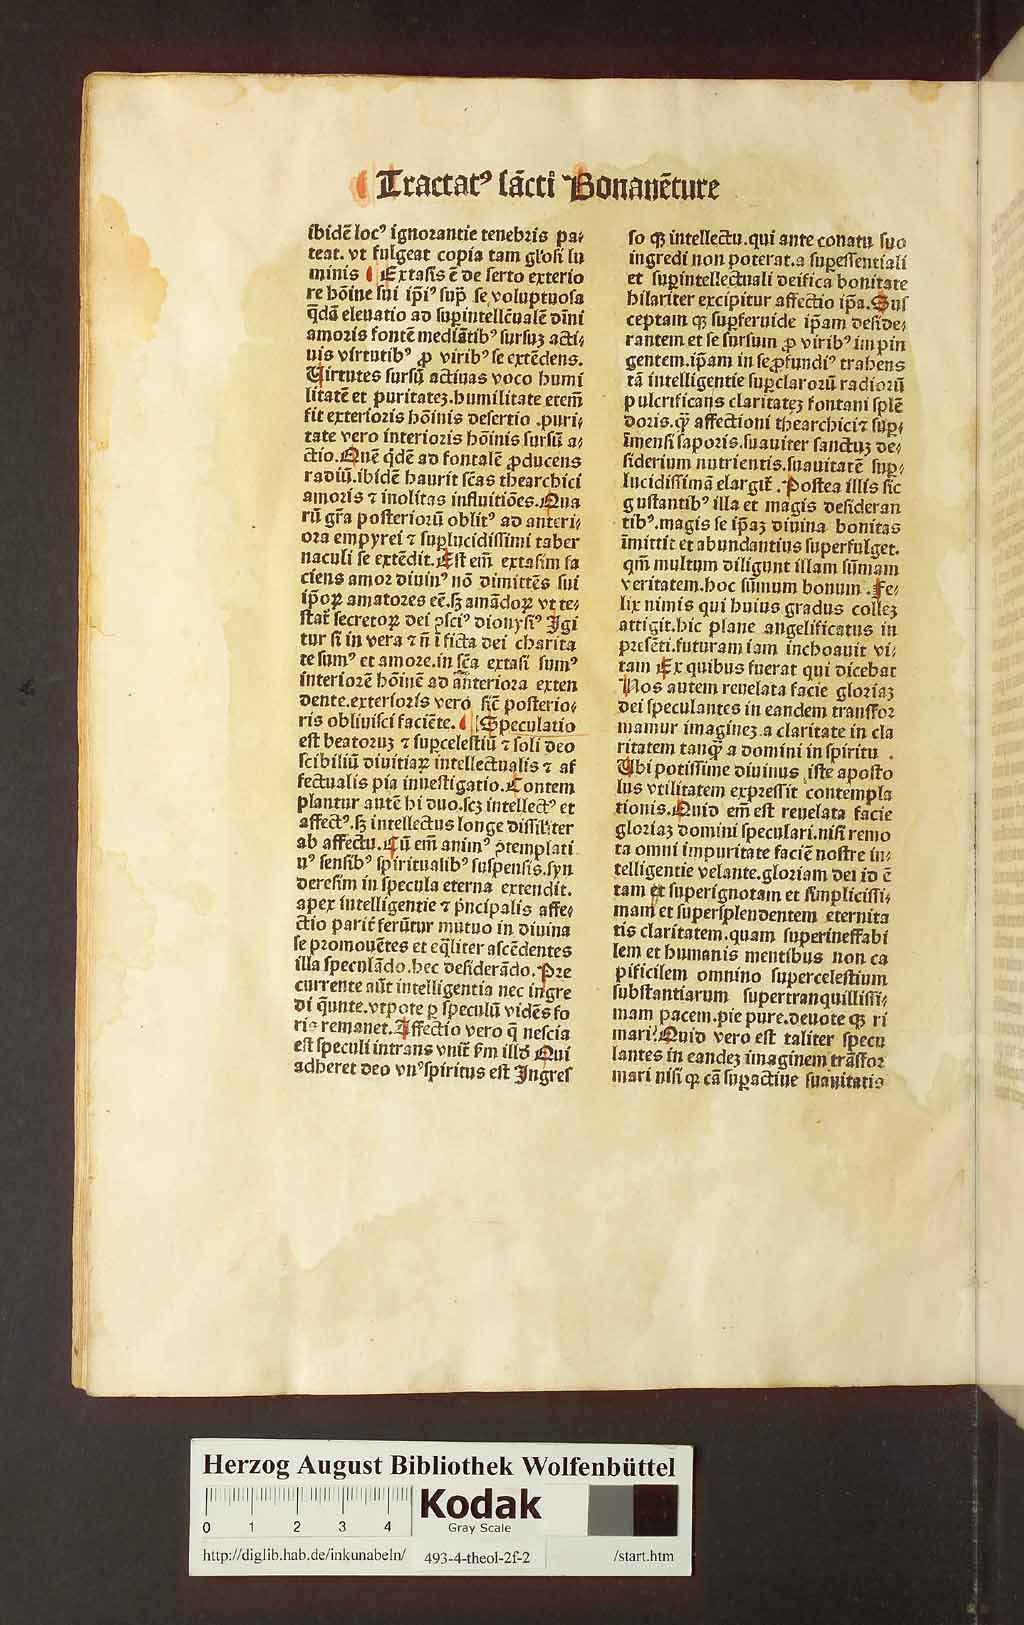 Tractatꝰ sācti Bonauēture
ibidē locꝰ ignorantie tenebris pa⸗
teat. vt fulgeat copia tam glosi lu
minis Extasis ē de serto exterio
re hōine sui ip̄iꝰ sup̄ se voluptuosa
q̄dā eleuatio ad supintellēualē dīni
amoris fontē mediātibꝰ sursuꝫ acti⸗
uis virtutibꝰ ꝓ viribꝰ se extēdens.
Virtutes sursū actiuas voco humi
litatē et puritateꝫ.humilitate etem̄
fit exterioris hōinis desertio .puri⸗
tate vero interioris hōinis sursū a⸗
ctio.Quē q̄dē ad fontalē ꝓducens
radiū.ibidē haurit sc̄as thearchici
amoris ⁊ inolitas influitiōes.Qua
rū gr̄a posteriorū oblitꝰ ad anteri⸗
ora empyrei ⁊ suplucidissimi taber
naculi se extēdit.Est em̄ extasim fa
ciens amor diuinꝰ nō dimittēs sui
ip̄oꝝ amatores eē.sꝫ amādoꝝ vt te⸗
stat̄ secretoꝝ dei ꝯsciꝰ dionysiꝰ Igi
tur si in vera ⁊ n̄ ī ficta dei charita
te sumꝰ et amore.in sc̄a extasi sumꝰ
interiorē hōinē ad anteriora exten
dente.exterioris vero sic̄ posterio⸗
ris obliuisci faciēte. Speculatio
est beatoruꝫ ⁊ supcelestiū ⁊ soli deo
scibiliū diuitiaꝝ intellectualis ⁊ af
fectualis pia inuestigatio.Contem
plantur autē hi duo.scꝫ intellectꝰ et
affectꝰ.sꝫ intellectus longe dissil̄iter
ab affectu.Cū em̄ animꝰ ꝯtemplati
uꝰ sensibꝰ spiritualibꝰ suspensis.syn
deresim in specula eterna extendit.
apex intelligentie ⁊ p̄ncipalis affe⸗
ctio parit̄ ferūtur mutuo in diuina
se promouētes et eq̄liter ascēdentes
illa speculādo.hec desiderādo.Pre
currente aūt intelligentia nec ingre
di q̄unte.vtpote ꝑ speculū vidēs fo
ris remanet.Affectio vero q̄ nescia
est speculi intrans vnit̄ fm̄ illd̄ Qui
adheret deo vnꝰspiritus est Ingres
so qꝫ intellectu.qui ante conatu suo
ingredi non poterat.a supessentiali
et supintellectuali deifica bonitate
hilariter excipitur affectio ip̄a.Sus
ceptam qꝫ supferuide ip̄am deside⸗
rantem et se sursum ꝓ viribꝰ impin
gentem.ip̄am in se ꝓfundiꝰ trahens
tā intelligentie supclarorū radiorū
pulcrificans claritateꝫ fontani splē
doris.q̄ꝫ affectioni thearchici⁊ sup⸗
īmensi saporis.suauiter sanctuꝫ de⸗
siderium nutrientis.suauitatē sup⸗
lucidissimā elargit̄.Postea illis sic̄
gustantibꝰ illa et magis desideran
tibꝰ.magis se ip̄aꝫ diuina bonitas
īmittit et abundantius superfulget.
qm̄ multum diligunt illam sūmam
veritatem.hoc sūmum bonum .Fe⸗
lix nimis qui huius gradus colleꝫ
attigit.hic plane angelificatus in
presēti.futuram iam inchoauit vi⸗
tam Ex quibus fuerat qui dicebat
Nos autem reuelata facie gloriaꝫ
dei speculantes in eandem transfor
mamur imagineꝫ a claritate in cla
ritatem tanq̄ꝫ a domini in spiritu .
Ubi potissime diuinus iste aposto
lus vtilitatem expressit contempla
tionis.Quid em̄ est reuelata facie
gloriaꝫ domini speculari.nisi remo
ta omni impuritate faciē nostre in⸗
telligentie velante.gloriam dei id ē
tam et superignotam et simplicissi⸗
mam et supersplendentem eternita
tis claritatem.quam superineffabi
lem et humanis mentibus non ca
pificilem omnino supercelestium
substantiarum supertranquillissi⸗
mam pacem.pie pure.deuote qꝫ ri
mari?.Quid vero est taliter specu
lantes in eandeꝫ imaginem trāsfor
mari nisi qꝫ cā supactiue suauitatis
Herzog August Bibliothek Wolfenbüttel
0 1 2 3 4
Kodak
Gray Scale
http://diglib.hab.de/inkunabeln/ 493-4-theol-2f-2 /start.htm